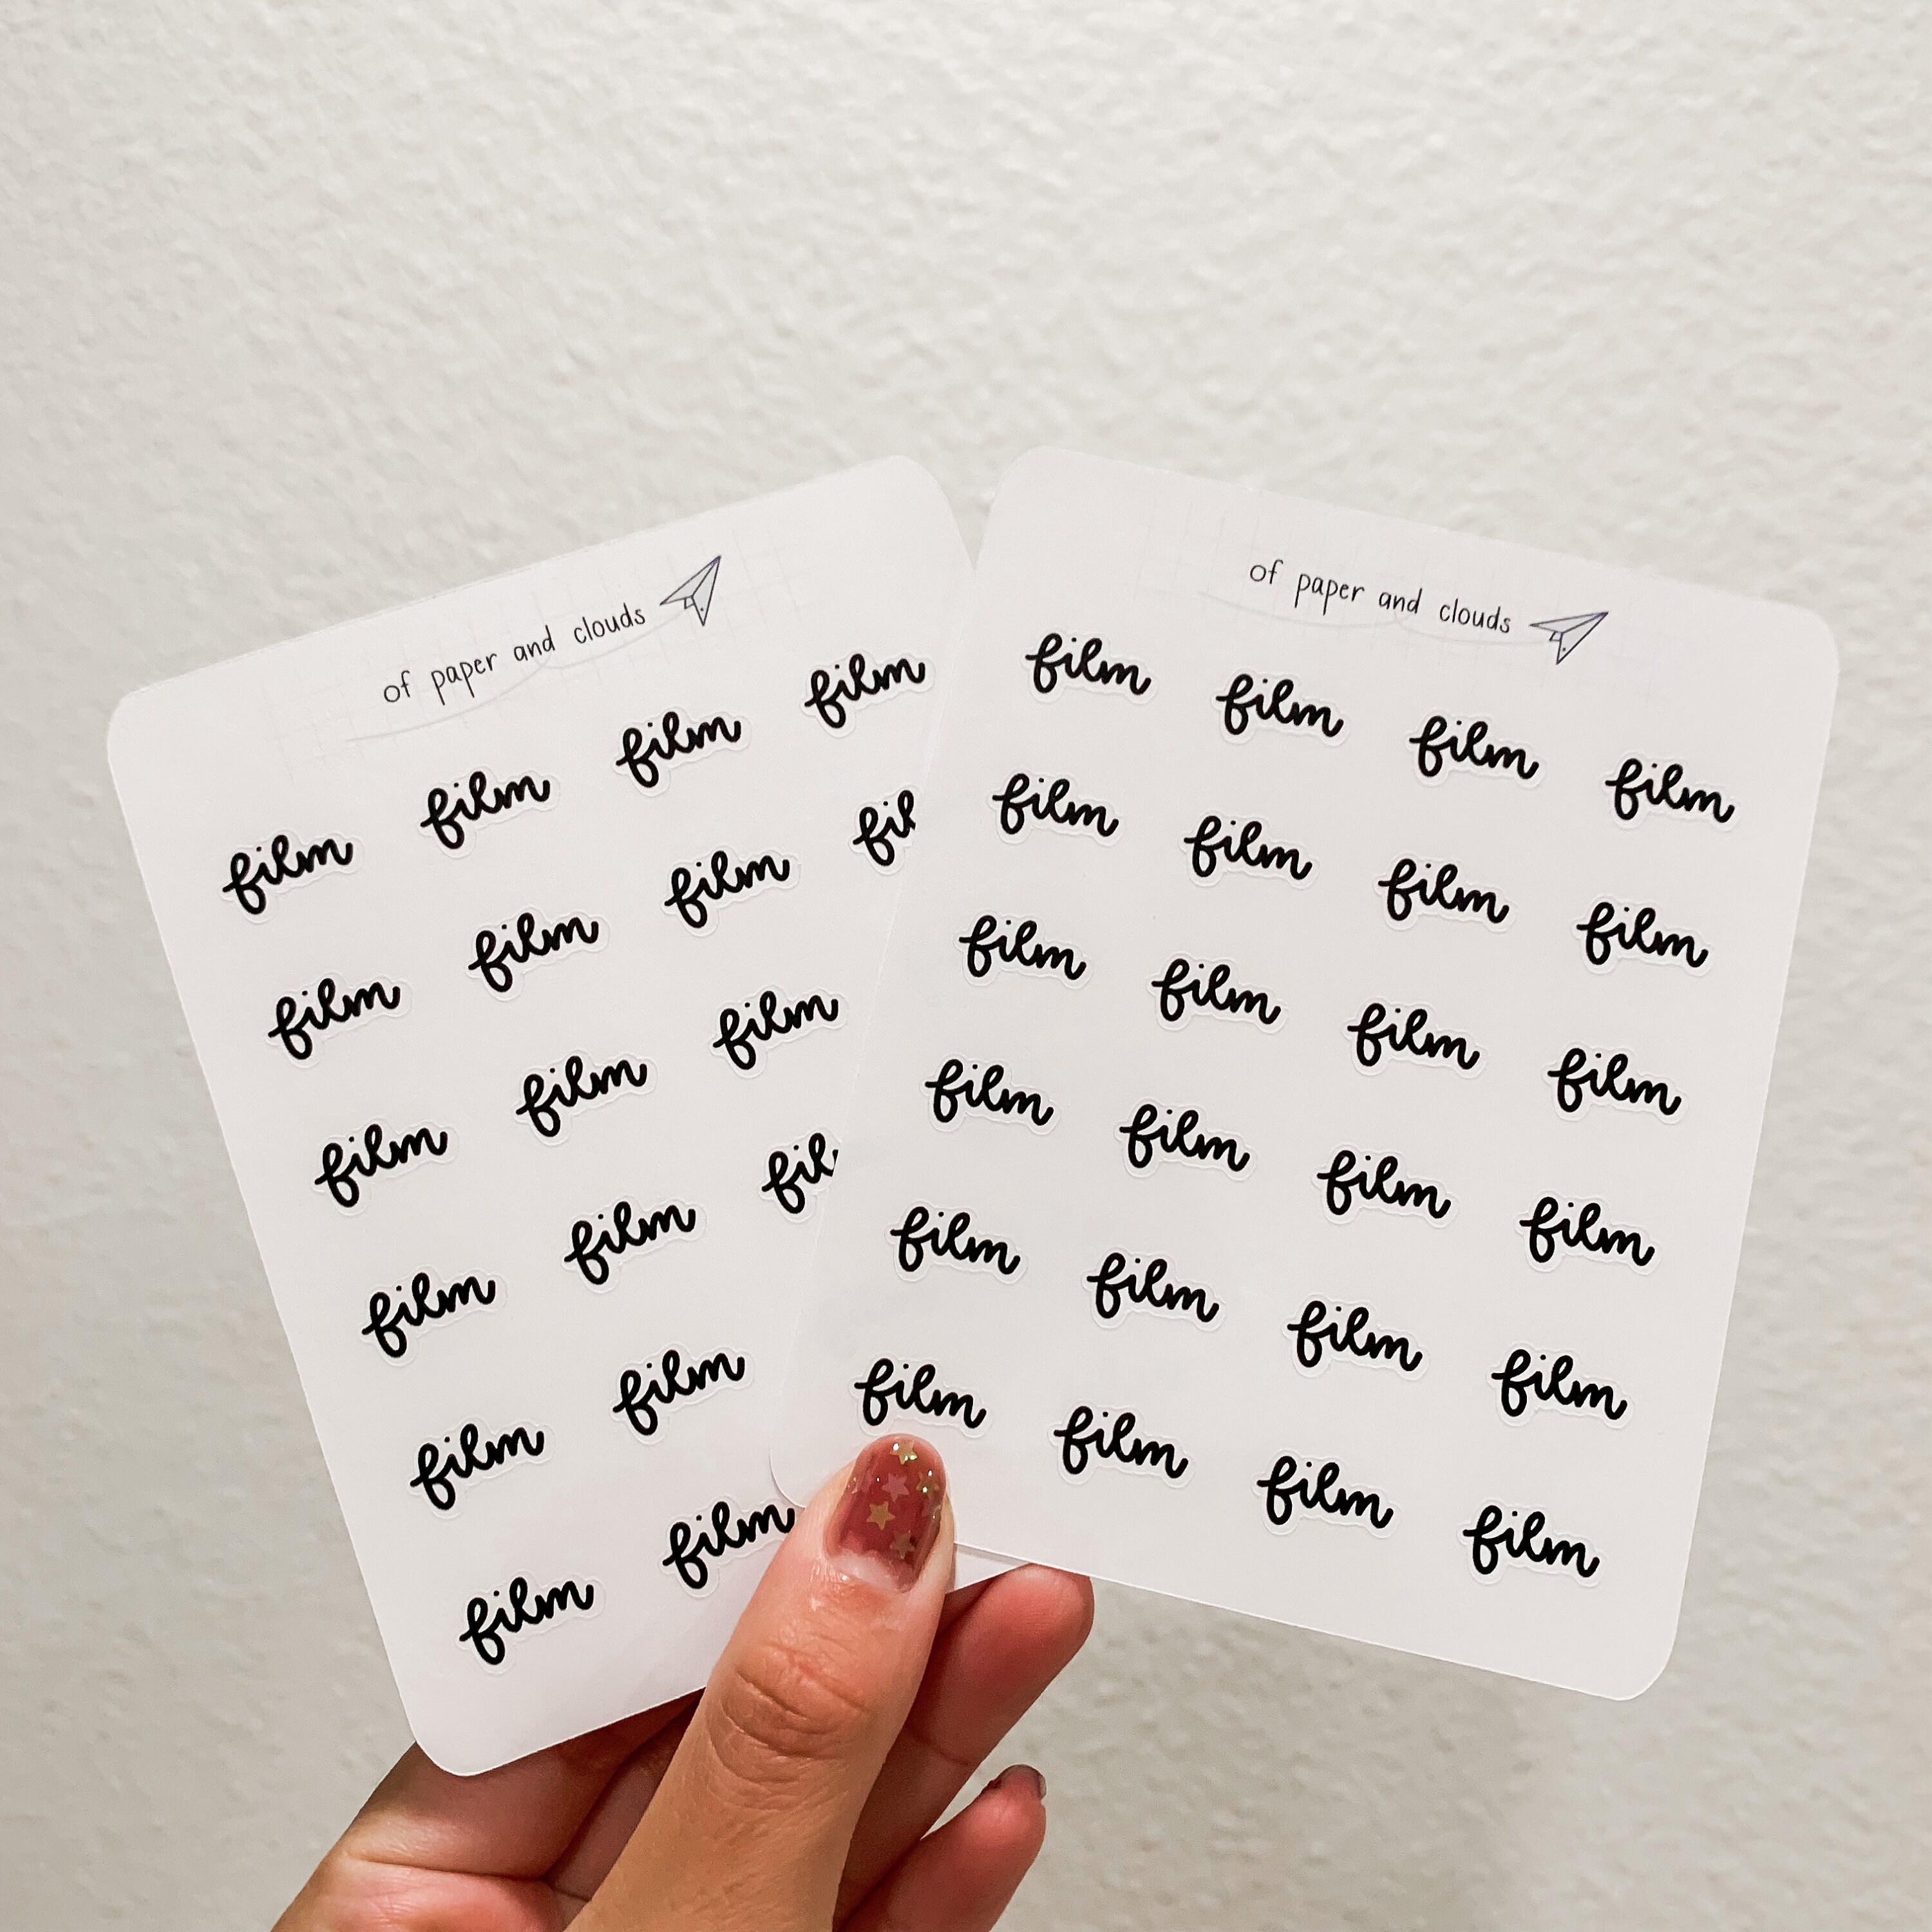 of paper and clouds
film film film film
film film film fil
film film film
film film fil
film film
film film
of paper and clouds
film film film film
film film film film
film film film film
film film film film
film film film film
film film film film